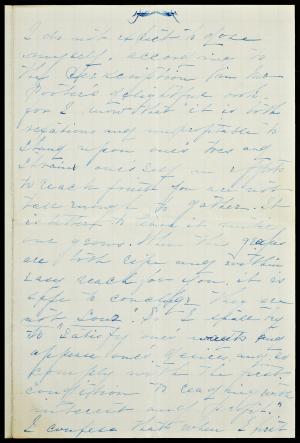 I do not expect to dose
myself, according to
the Prescription in the
Doctor's delightful book.
you I know that it is both
vexatious and unprofitable to
stand upon one's toes and
strain one's self in efforts
to reach fruit you are not
tall enough to gather. It
is better to leave it until
one grows. When the grapes
are both ripe and within
easy reach for you, it is
safe to conclude they are
not sour. So I shall try
to satisfy one's wants and
appease one's desires, and so
comply with the
condition to reading with
interest and profit.
I confess that when I first